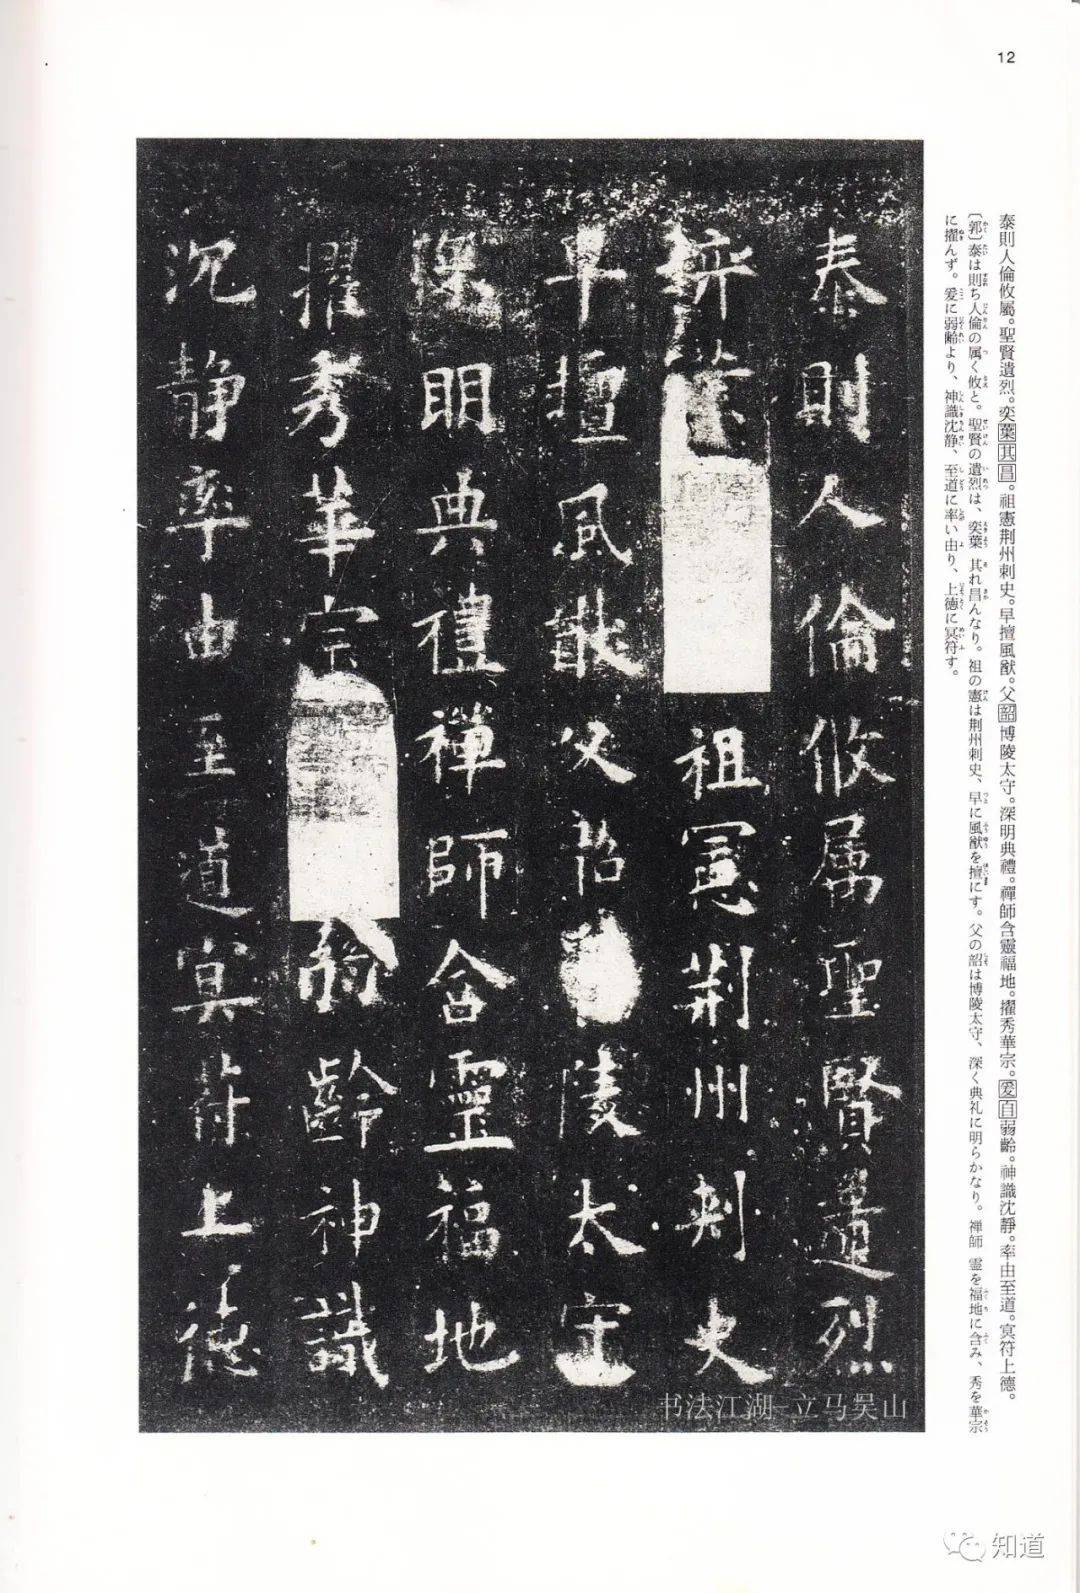 12
泰則人倫攸屬。聖賢遺烈。奕葉其昌。祖憲荆州刺史。早擅風猷。父韶博陵太守。深明典禮。禪師含靈福地。擢秀華宗。爰自弱齡。神識沈靜。率由至道。冥符上德。
〔郭〕泰は則ち人倫の属く攸と。聖賢の遺烈は、奕葉 其れ昌んなり。祖の憲は荆州刺史、早に風猷を擅にす。父の韶は博陵太守、深く典礼に明らかなり。禅師 霊を福地に含み、秀を華宗
に擢んず。爰に弱齢より、神識沈静、至道に率い由り、上徳に冥符す。
泰則人倫攸属聖賢遺烈
弈葉祖憲荆州刺史
早擅風猷父韶陵太守
深明典禮禪師含靈福地
擢秀華宗弱齡神識
沉静率由至道冥符上德
书法江湖-立马吴山
知道